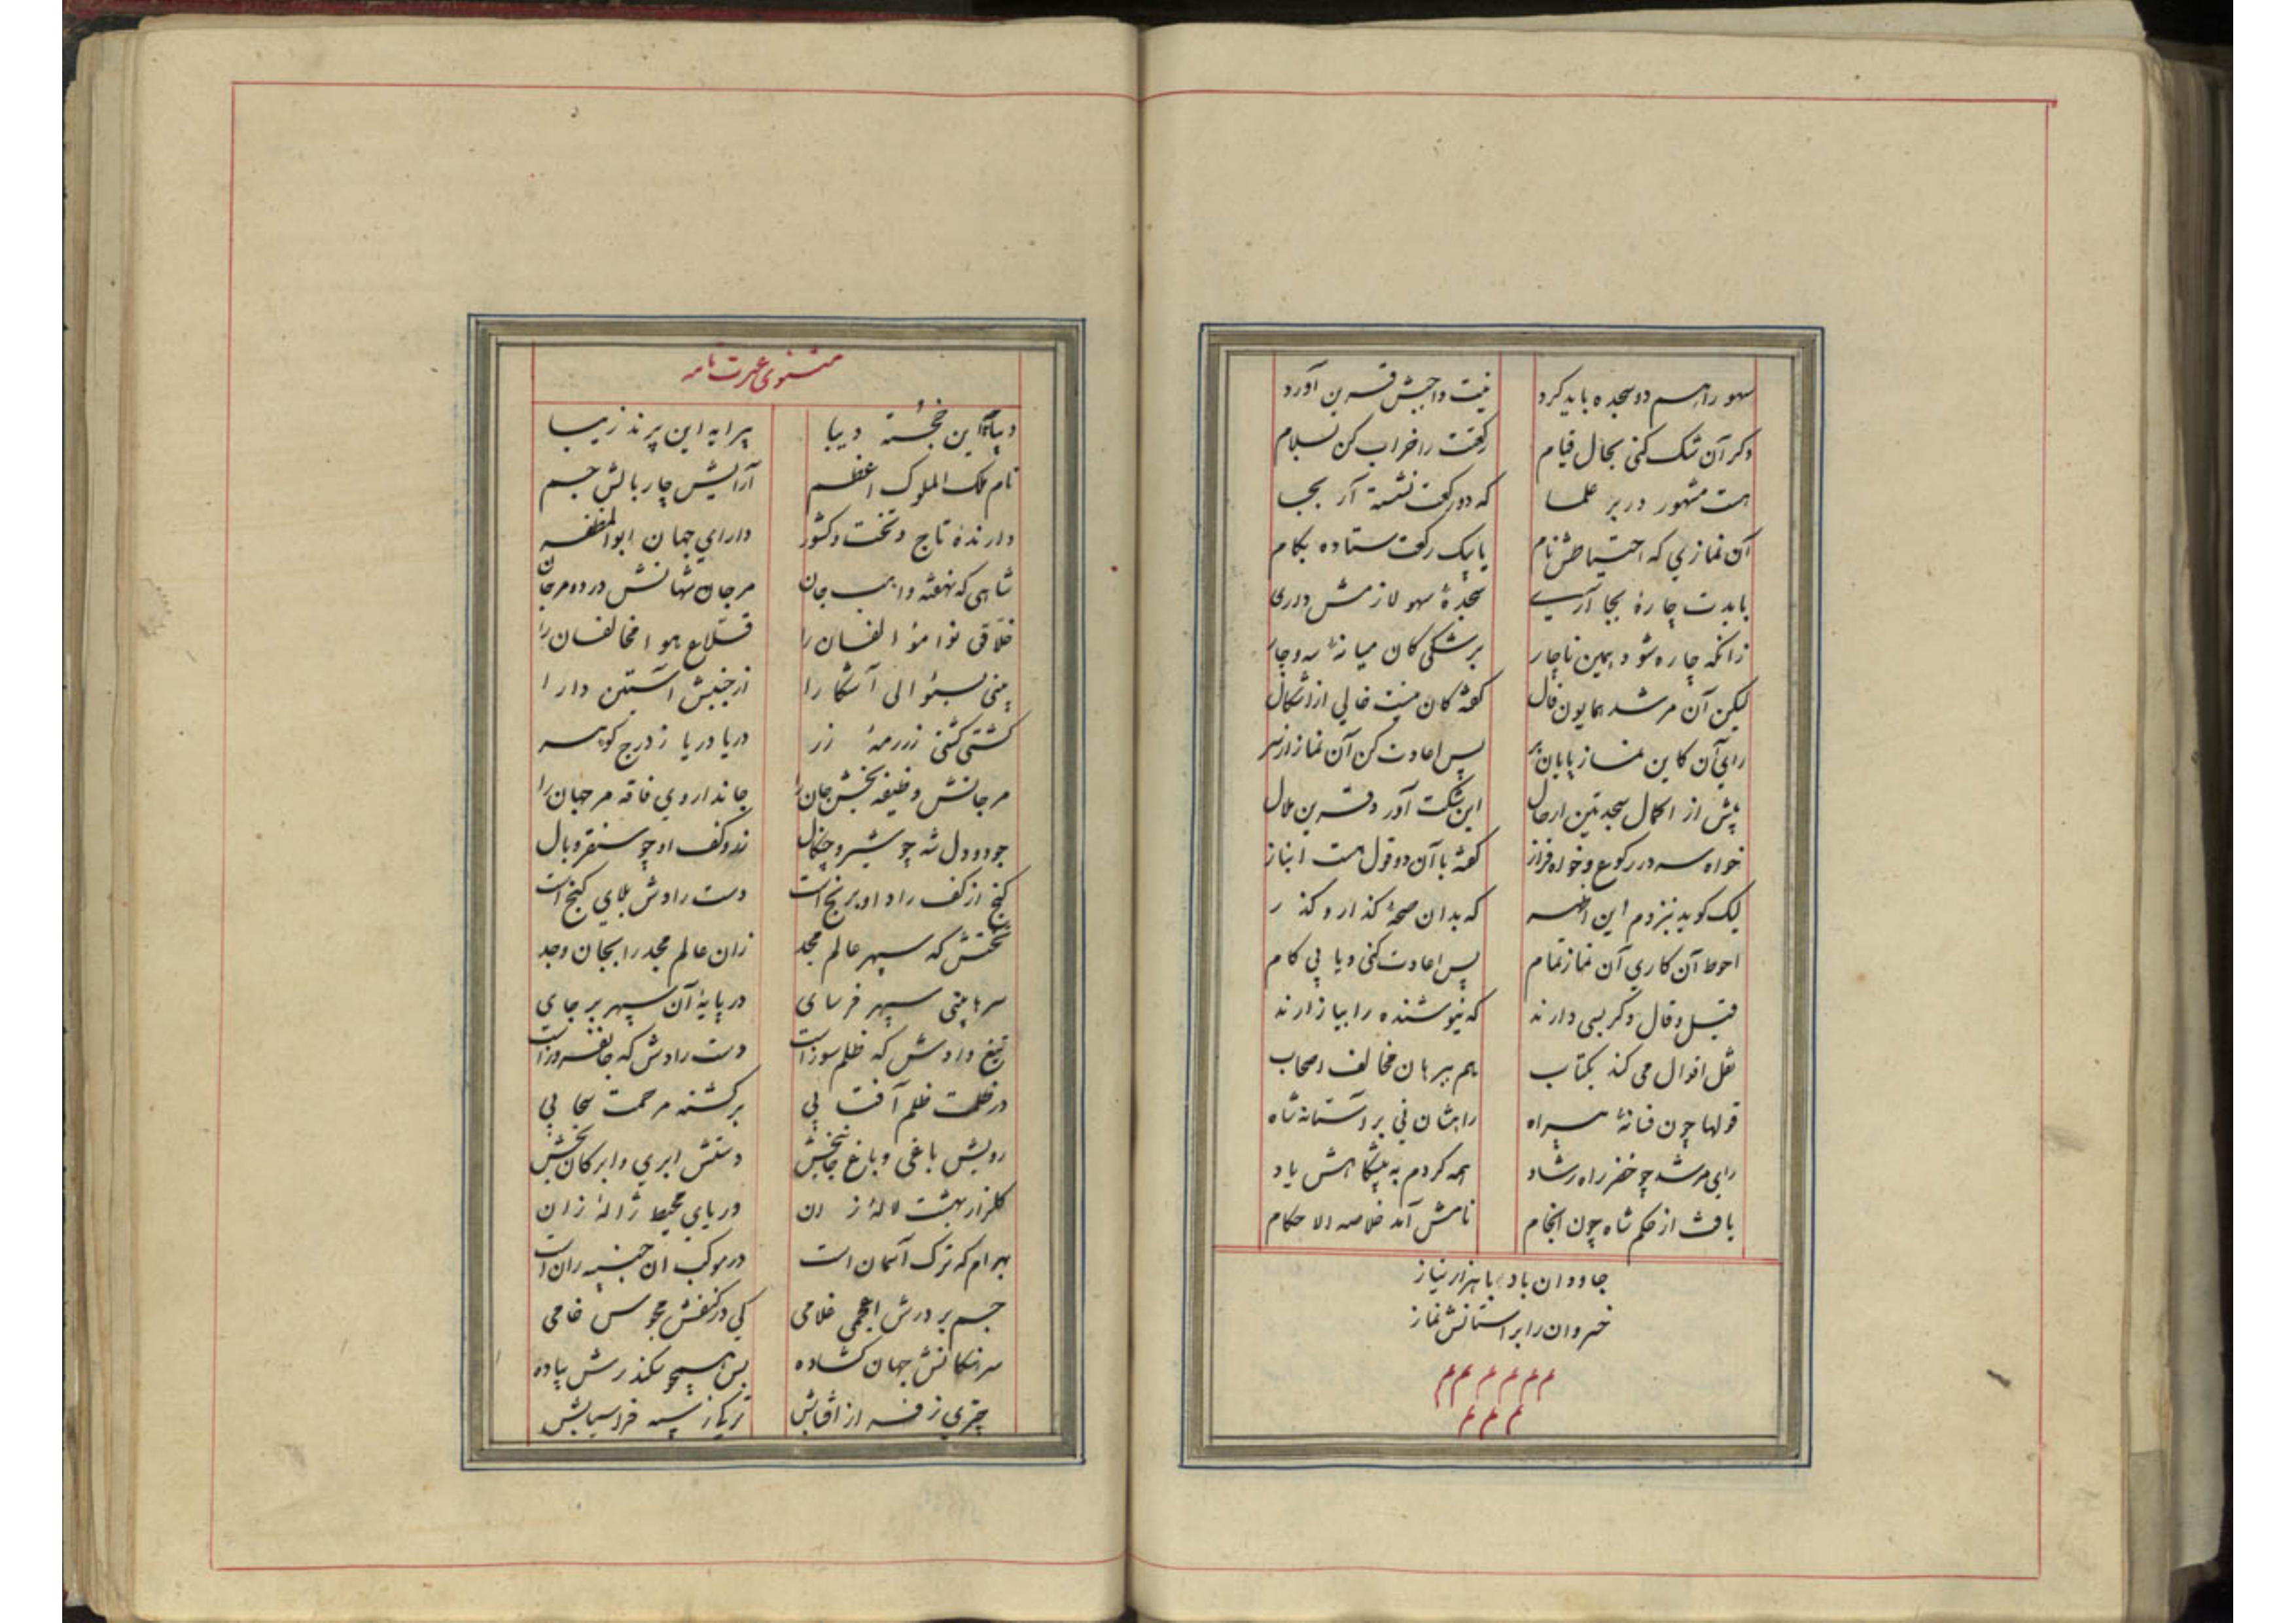 سهو را هم دو سجده باید کرد نیت واجبش قرین آورد
وکر آن شک کنی بحال قیام رکعت را خراب کن بسلام
هست مشهور در بر علما که دو رکعت نشسته آر بجا
آن نمازي که احتیاطش نام یا یک رکعت ستاده بکام
بایدت چارۀ بجا آری سجدۀ سهو لازمش داری
زانکه چاره شود همین ناچار بر شکی کان میانۀ سه و چار
لیکن آن مرشد همایون فال گفته کان نیست خالي از اشکال
راي آن کاین نماز پایان بر پس اعادت کن آن نماز از سر
پیش از اکمال سجدتین ار حال این شکت آورد قرین ملال
خواه سه در رکوع و خواه فراز گفته با آن دو قول هست انباز
لیک کوید بنزدم این اظهر که بدان صحه کذار و کذر
احوط آن کاري آن نماز تمام پس اعادت کنی و یا پي کام
قیل و قال دکر بسی دارند که نیوشنده را بیازارند
نقل اقوال می کند بکتاب هم ببرهان مخالف اصحاب
قولها چون فسانۀ بیراه راهشان نی بر آستانۀ شاه
رای مرشد چو خضر راه رشاد همه کردم به پیشکاهش یاد
یافت از حکم شاه چون انجام نامش آمد خلاصه الاحکام
جاودان باد با هزار نیاز
خسروان را بر استانش نماز
م م م م م م
م م م
مثنوی عبرت نامه
دیباچۀ این خجسته دیبا پیرایه این پرند زیبا
نام ملک الملوک اعظم آرایش چار بالش جم
دارندۀ تاج و تخت و کشور داراي جهان ابوالمظفر
شاهی که نهفته واهب جان مرجان شهانش در دو مرجان
خلاقی نوا مؤالفان را قلاع هوا مخالفان را
بینی بسئوالی آشکارا از جنبش آستین دارا
کشتی کشتی ز رمۀ زر دریا دریا ز درج کوهر
مرجانش وظیفه بخش جان را جانداروي فاقه مر جهان را
جود و دل شه چو شیر و چنکال نقد و کف او چو سنقر و بال
کنج از کف راد او برنج است دست رادش بلاي کنج است
تختش که سپهر عالم مجد زان عالم مجد را بجان وجد
سرها بینی سپهر فرسای در پایۀ آن سپهر بر جای
تیغ دادش که ظلم سوز است دست رادش که جانفروز است
در ظلمت ظلم آفتابي بر کشته مرحمت سحابي
رویش باغی و باغ جانبخش دستش ابري و ابر کان بخش
کلزار بهشت لالۀ زان دریاي محیط ژالۀ زان
بهرام که ترک آسمان است در موکب ان جنیبه ران است
جم بر درش اعجمی غلامی کي در کنفش مجوس خامی
سرهنکانش جهان کشاده بس هیچو بکذرش پیاده
چتري ز فر از آفتابش ترکی ز سپه فراسیابش